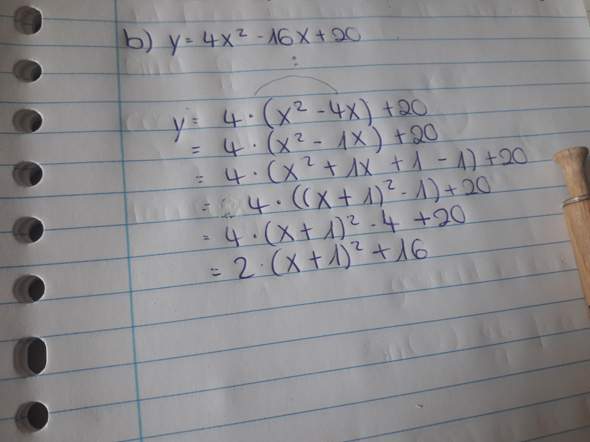 b) y = 4x² - 16x + 20
:
y = 4 · (x² - 4x) + 20
= 4 · (x² - 1x) + 20
= 4 · (x² + 1x + 1 - 1) + 20
= 4 · ((x + 1)² - 1) + 20
= 4 · (x + 1)² - 4 + 20
= 2 · (x + 1)² + 16